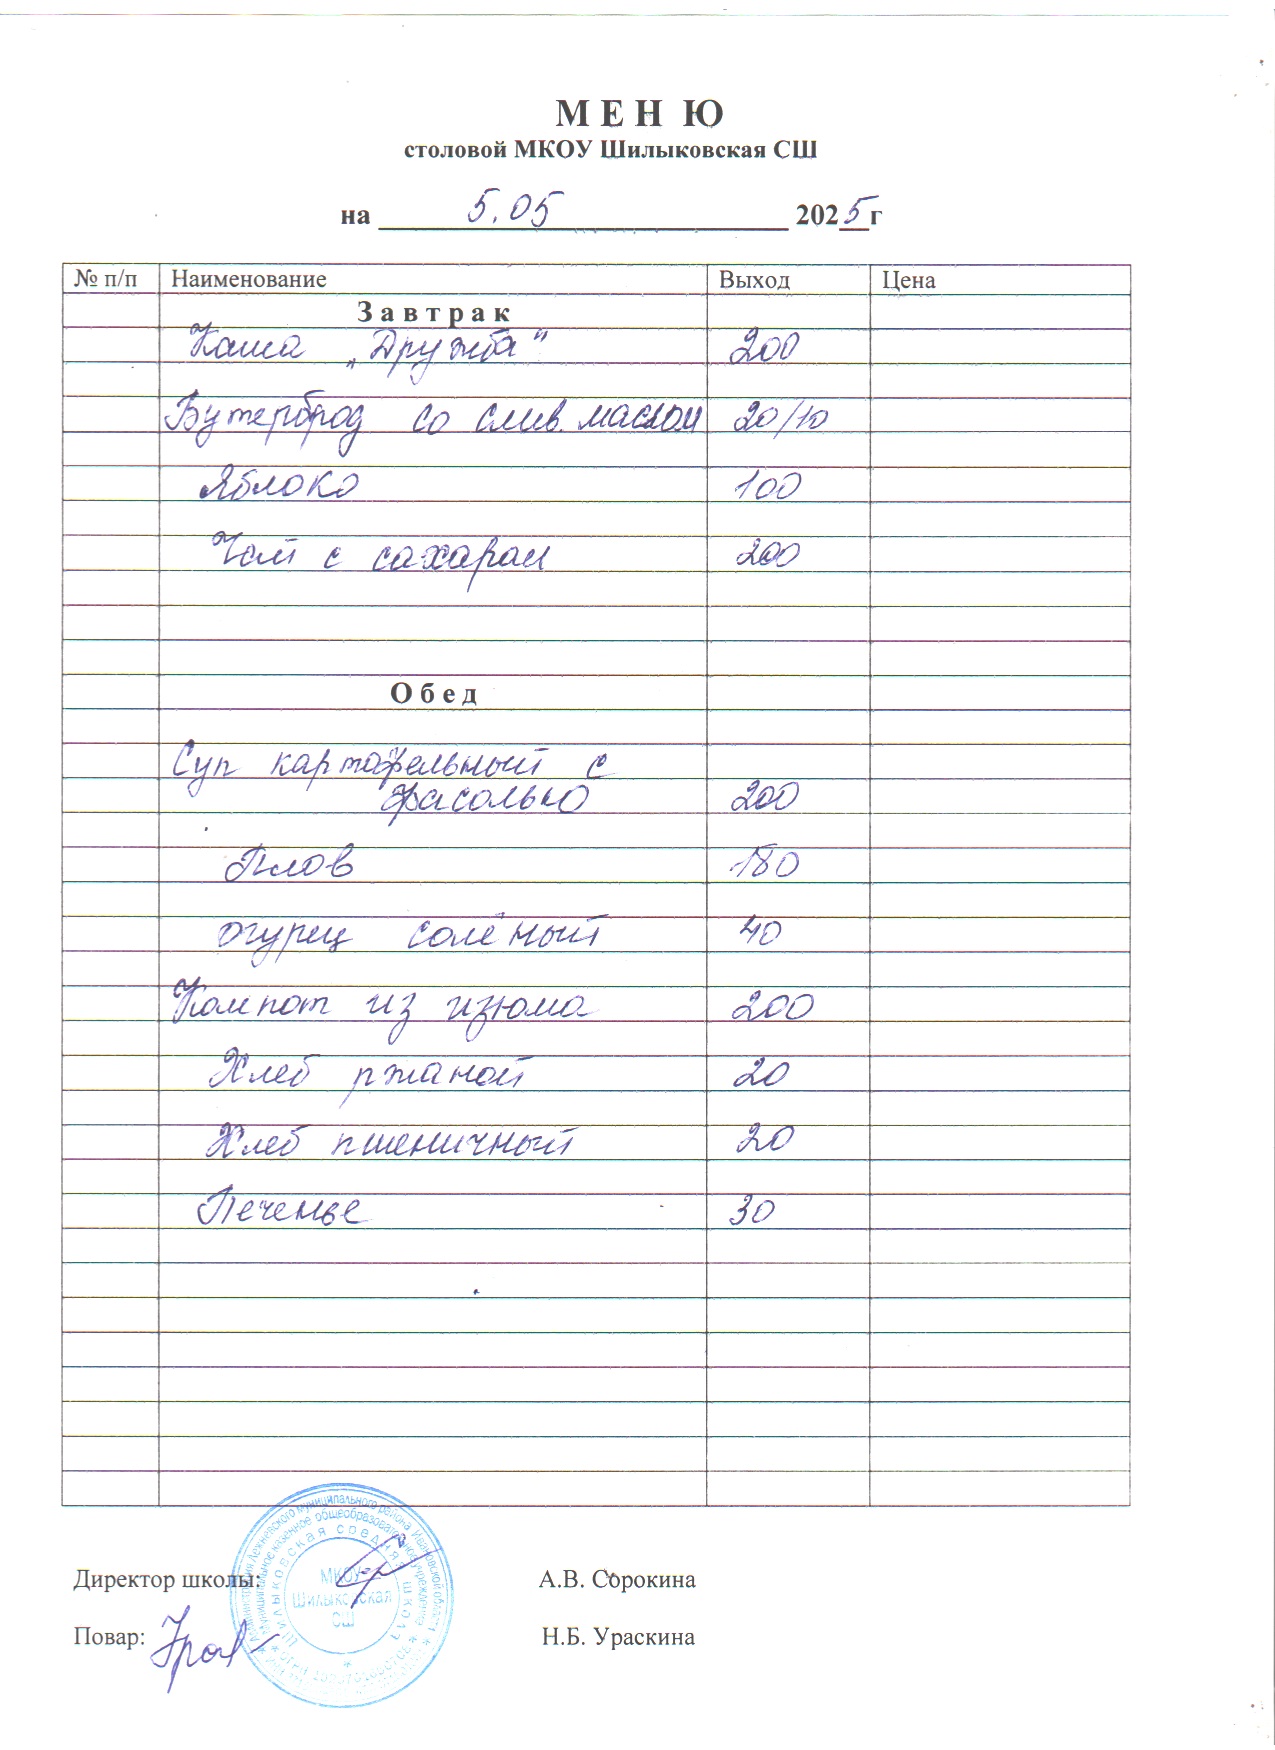 М Е Н Ю
столовой МКОУ Шилыковская СШ
на 5.05 2025г
№ п/п Наименование Выход Цена
З а в т р а к
Каша „Дружба" 200
Бутерброд со слив. маслом 20/10
Яблоко 100
Чай с сахаром 200
О б е д
Суп картофельный с
фасолью 200
Плов 180
огурец солёный 40
Компот из изюма 200
Хлеб ржаной 20
Хлеб пшеничный 20
Печенье 30
Директор школы: А.В. Сорокина
Повар: Н.Б. Ураскина
Лежневского муниципального района Ивановской области
Муниципальное казенное общеобразовательное учреждение
Шилыковская средняя школа
МКОУ
Шилыковская
СШ